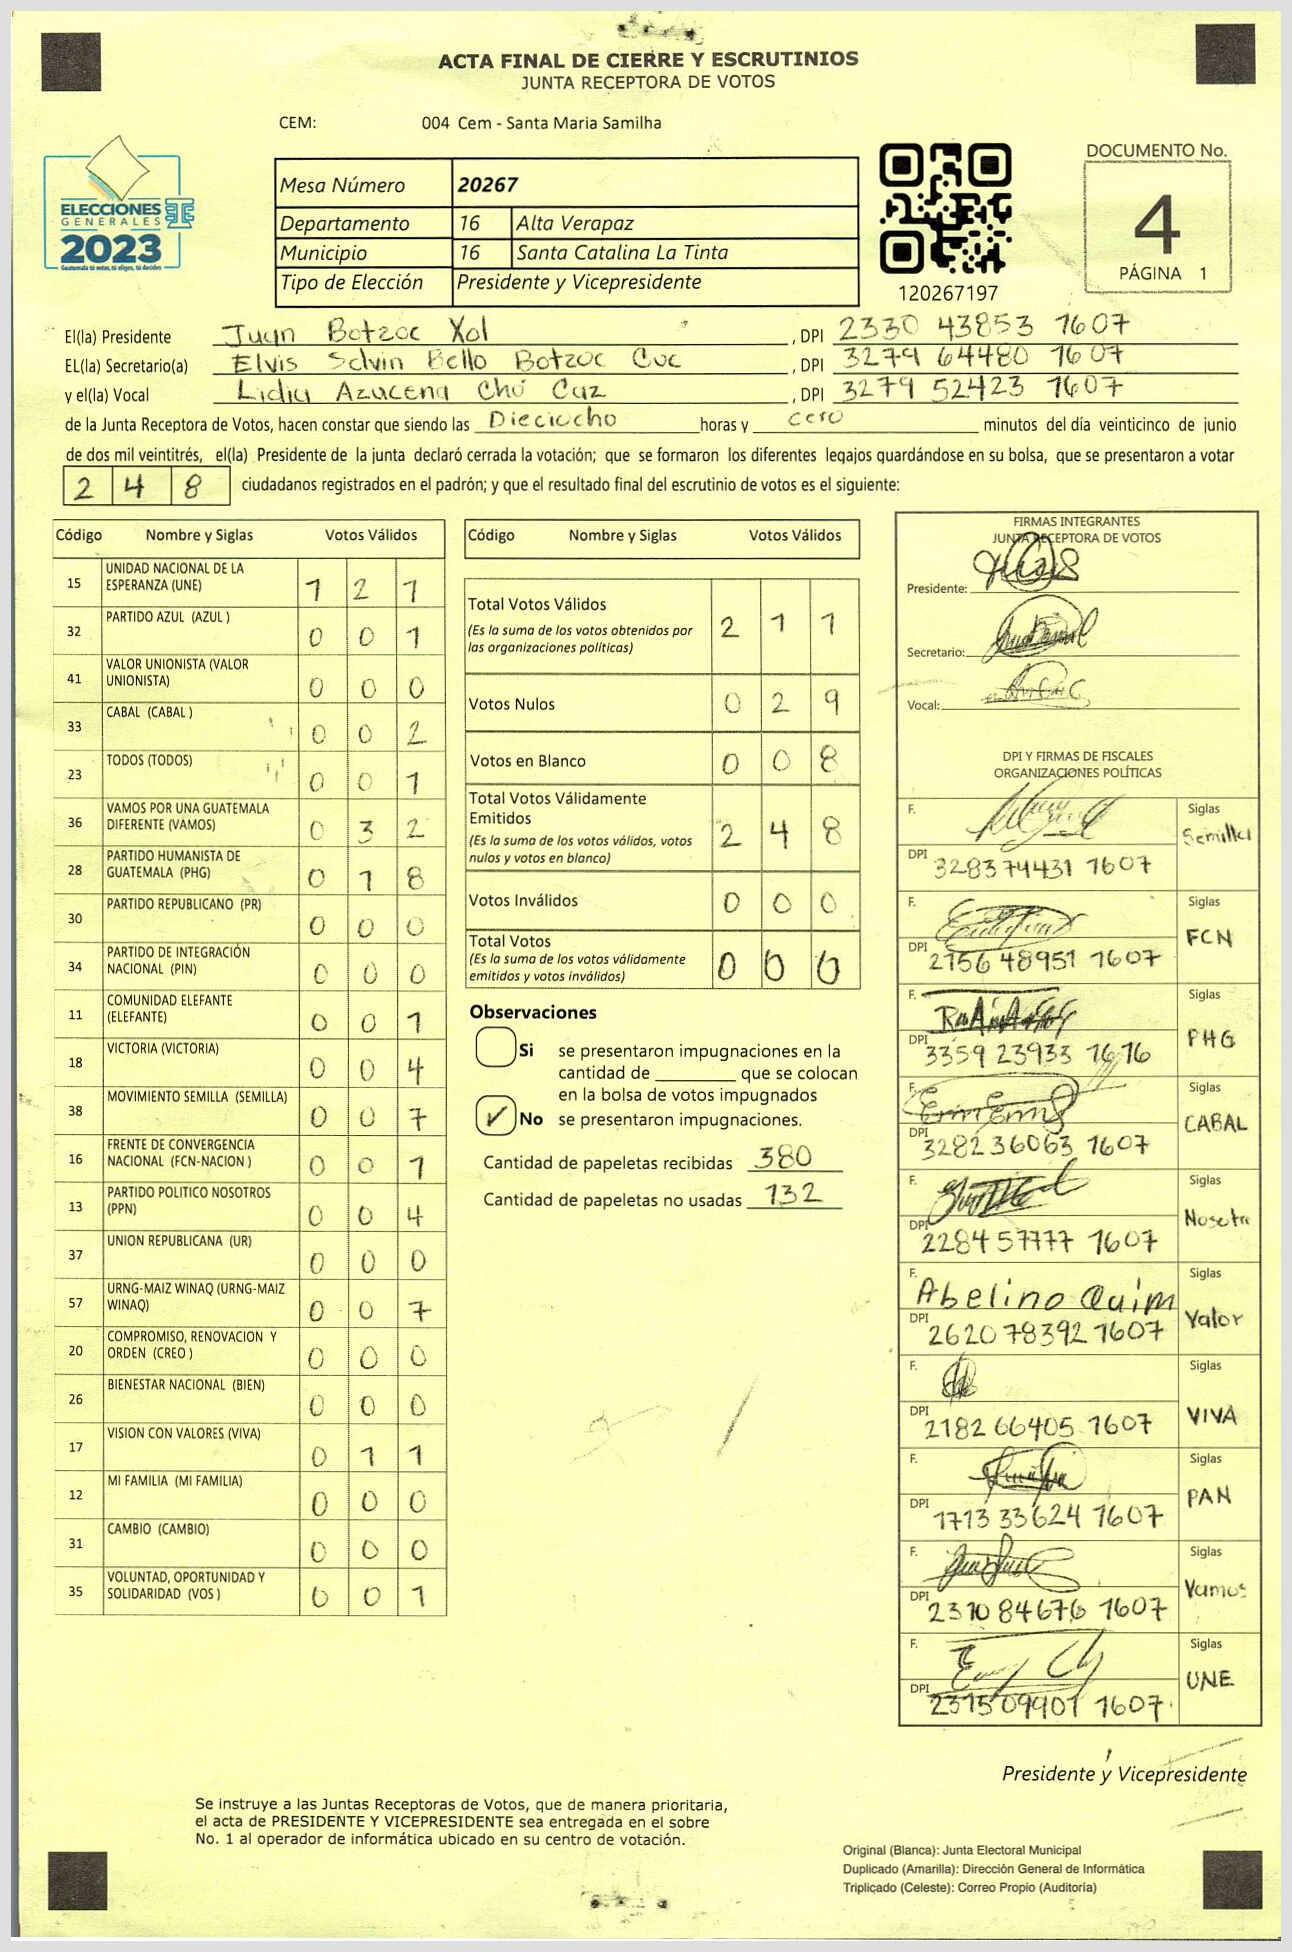 ACTA FINAL DE CIERRE Y ESCRUTINIOS
JUNTA RECEPTORA DE VOTOS
CEM: 004 Cem - Santa Maria Samilha
ELECCIONES
GENERALES
2023
Guatemala tú votas, tú eliges, tú decides
Mesa Número 20267
Departamento 16 Alta Verapaz
Municipio 16 Santa Catalina La Tinta
Tipo de Elección Presidente y Vicepresidente
120267197
DOCUMENTO No.
4
PÁGINA 1
El(la) Presidente Juan Botzoc Xol, DPI 2330 43853 1607
EL(la) Secretario(a) Elvis Selvin Bello Botzoc Cuc, DPI 3279 64480 1607
y el(la) Vocal Lidia Azucena Chó Caz, DPI 3279 52423 1607
de la Junta Receptora de Votos, hacen constar que siendo las Dieciocho horas y cero minutos del día veinticinco de junio
de dos mil veintitrés, el(la) Presidente de la junta declaró cerrada la votación; que se formaron los diferentes legajos guardándose en su bolsa, que se presentaron a votar
2 4 8 ciudadanos registrados en el padrón; y que el resultado final del escrutinio de votos es el siguiente:
Código Nombre y Siglas Votos Válidos
15 UNIDAD NACIONAL DE LA ESPERANZA (UNE) 1 2 1
32 PARTIDO AZUL (AZUL ) 0 0 1
41 VALOR UNIONISTA (VALOR UNIONISTA) 0 0 0
33 CABAL (CABAL ) 0 0 2
23 TODOS (TODOS) 0 0 1
36 VAMOS POR UNA GUATEMALA DIFERENTE (VAMOS) 0 3 2
28 PARTIDO HUMANISTA DE GUATEMALA (PHG) 0 1 8
30 PARTIDO REPUBLICANO (PR) 0 0 0
34 PARTIDO DE INTEGRACIÓN NACIONAL (PIN) 0 0 0
11 COMUNIDAD ELEFANTE (ELEFANTE) 0 0 1
18 VICTORIA (VICTORIA) 0 0 4
38 MOVIMIENTO SEMILLA (SEMILLA) 0 0 7
16 FRENTE DE CONVERGENCIA NACIONAL (FCN-NACION ) 0 0 1
13 PARTIDO POLITICO NOSOTROS (PPN) 0 0 4
37 UNION REPUBLICANA (UR) 0 0 0
57 URNG-MAIZ WINAQ (URNG-MAIZ WINAQ) 0 0 7
20 COMPROMISO, RENOVACION Y ORDEN (CREO ) 0 0 0
26 BIENESTAR NACIONAL (BIEN) 0 0 0
17 VISION CON VALORES (VIVA) 0 1 1
12 MI FAMILIA (MI FAMILIA) 0 0 0
31 CAMBIO (CAMBIO) 0 0 0
35 VOLUNTAD, OPORTUNIDAD Y SOLIDARIDAD (VOS ) 0 0 1
Código Nombre y Siglas Votos Válidos
Total Votos Válidos 2 1 1
(Es la suma de los votos obtenidos por
las organizaciones políticas)
Votos Nulos 0 2 9
Votos en Blanco 0 0 8
Total Votos Válidamente
Emitidos 2 4 8
(Es la suma de los votos válidos, votos
nulos y votos en blanco)
Votos Inválidos 0 0 0
Total Votos 0 0 0
(Es la suma de los votos válidamente
emitidos y votos inválidos)
Observaciones
Si se presentaron impugnaciones en la
cantidad de ________ que se colocan
en la bolsa de votos impugnados
No se presentaron impugnaciones.
Cantidad de papeletas recibidas 380
Cantidad de papeletas no usadas 132
FIRMAS INTEGRANTES
JUNTA RECEPTORA DE VOTOS
Presidente:
Secretario:
Vocal:
DPI Y FIRMAS DE FISCALES
ORGANIZACIONES POLÍTICAS
F. Siglas Semilla
DPI 328374431 1607
F. Siglas FCN
DPI 2156 48951 1607
F. Siglas PHG
DPI 3359 23933 1616
F. Siglas CABAL
DPI 328236063 1607
F. Siglas Nosotr
DPI 2284 57777 1607
F. Abelino Quim Siglas Valor
DPI 2620 78392 1607
F. Siglas VIVA
DPI 2182 66405 1607
F. Siglas PAN
DPI 1713 33624 1607
F. Siglas Vamos
DPI 2310 84676 1607
F. Siglas UNE
DPI 2315 09901 1607
Presidente y Vicepresidente
Se instruye a las Juntas Receptoras de Votos, que de manera prioritaria,
el acta de PRESIDENTE Y VICEPRESIDENTE sea entregada en el sobre
No. 1 al operador de informática ubicado en su centro de votación.
Original (Blanca): Junta Electoral Municipal
Duplicado (Amarilla): Dirección General de Informática
Triplicado (Celeste): Correo Propio (Auditoría)